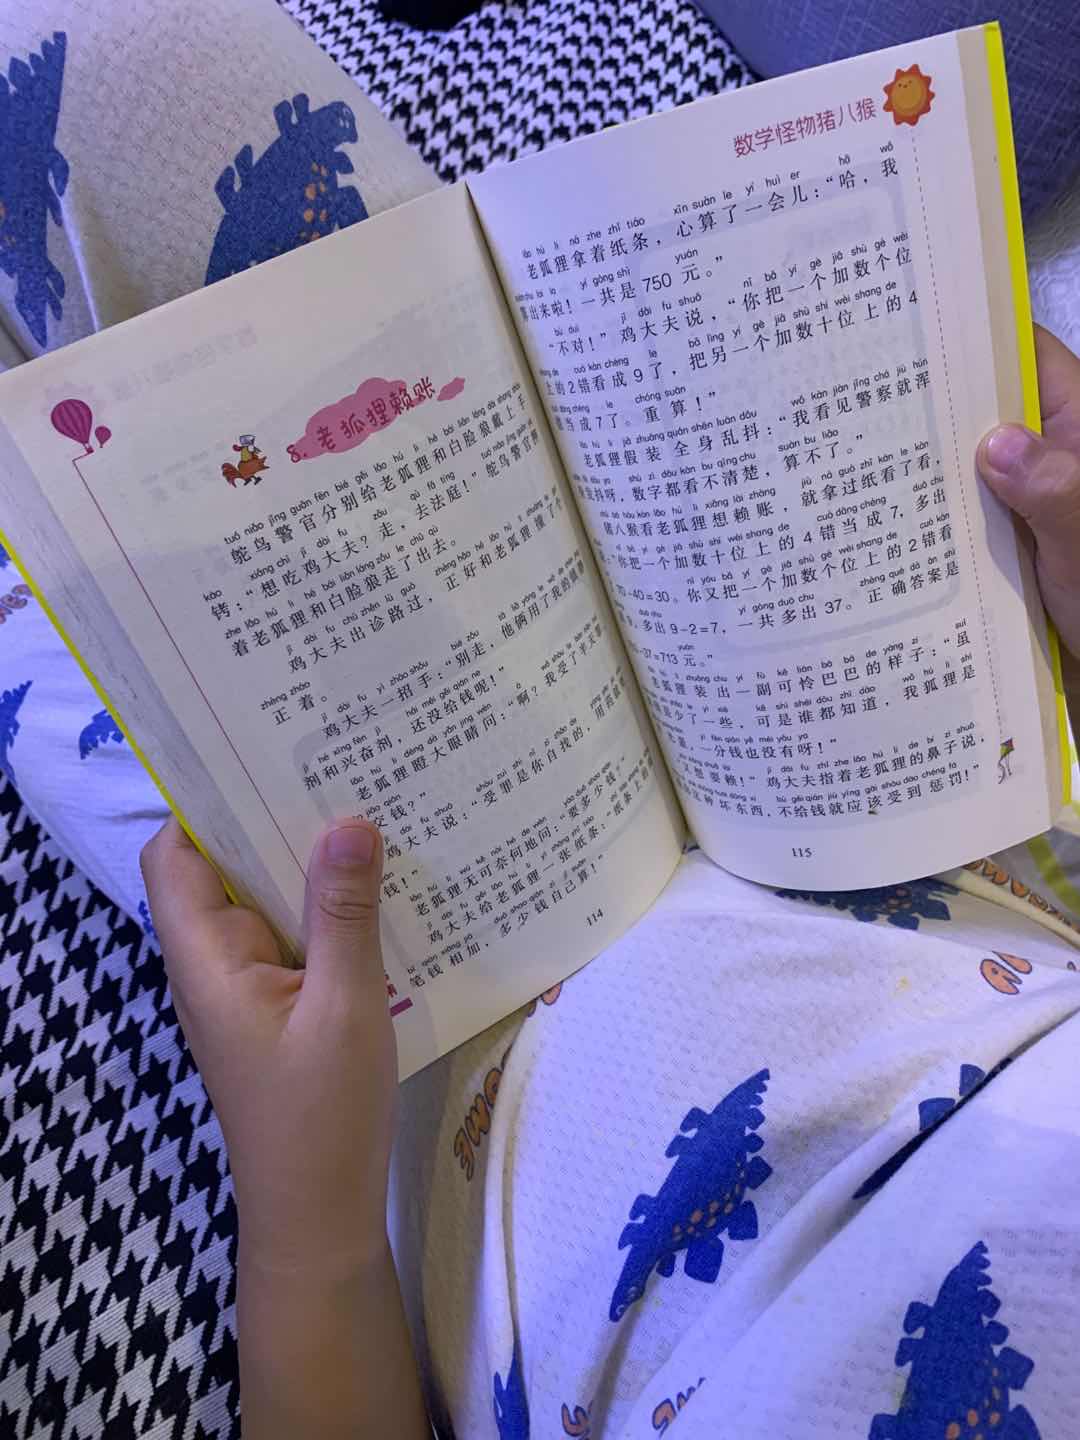 8. 老狐狸赖账
鸵鸟警官分别给老狐狸和白脸狼戴上手
铐：“想吃鸡大夫？走，去法庭！”鸵鸟警官押
着老狐狸和白脸狼走了出去。
鸡大夫出诊路过，正好和老狐狸撞了个
正着。
鸡大夫一招手：“别走，他俩用了我的镇静
剂和兴奋剂，还没给钱呢！”
老狐狸瞪大眼睛问：“啊？我受了半天罪
交钱？”
鸡大夫说：“受罪是你自找的，用药
钱！”
老狐狸无可奈何地问：“要多少钱？”
鸡大夫给老狐狸一张纸条：“纸条上的
笔钱相加，多少钱自己算！”
114
数学怪物猪八猴
老狐狸拿着纸条，心算了一会儿：“哈，我
算出来啦！一共是750元。”
“不对！”鸡大夫说，“你把一个加数个位
上的2错看成9了，把另一个加数十位上的4
当成7了。重算！”
老狐狸假装全身乱抖：“我看见警察就浑
身发抖呀，数字都看不清楚，算不了。”
猪八猴看老狐狸想赖账，就拿过纸看了看，
：“你把一个加数十位上的4错当成7，多出
70-40=30。你又把一个加数个位上的2错看
9，多出9-2=7，一共多出37。正确答案是
-37=713元。”
老狐狸装出一副可怜巴巴的样子：“虽
少了一些，可是谁都知道，我狐狸是
，一分钱也没有呀！”
又想耍赖！”鸡大夫指着老狐狸的鼻子说，
这种坏东西，不给钱就应该受到惩罚！”
115